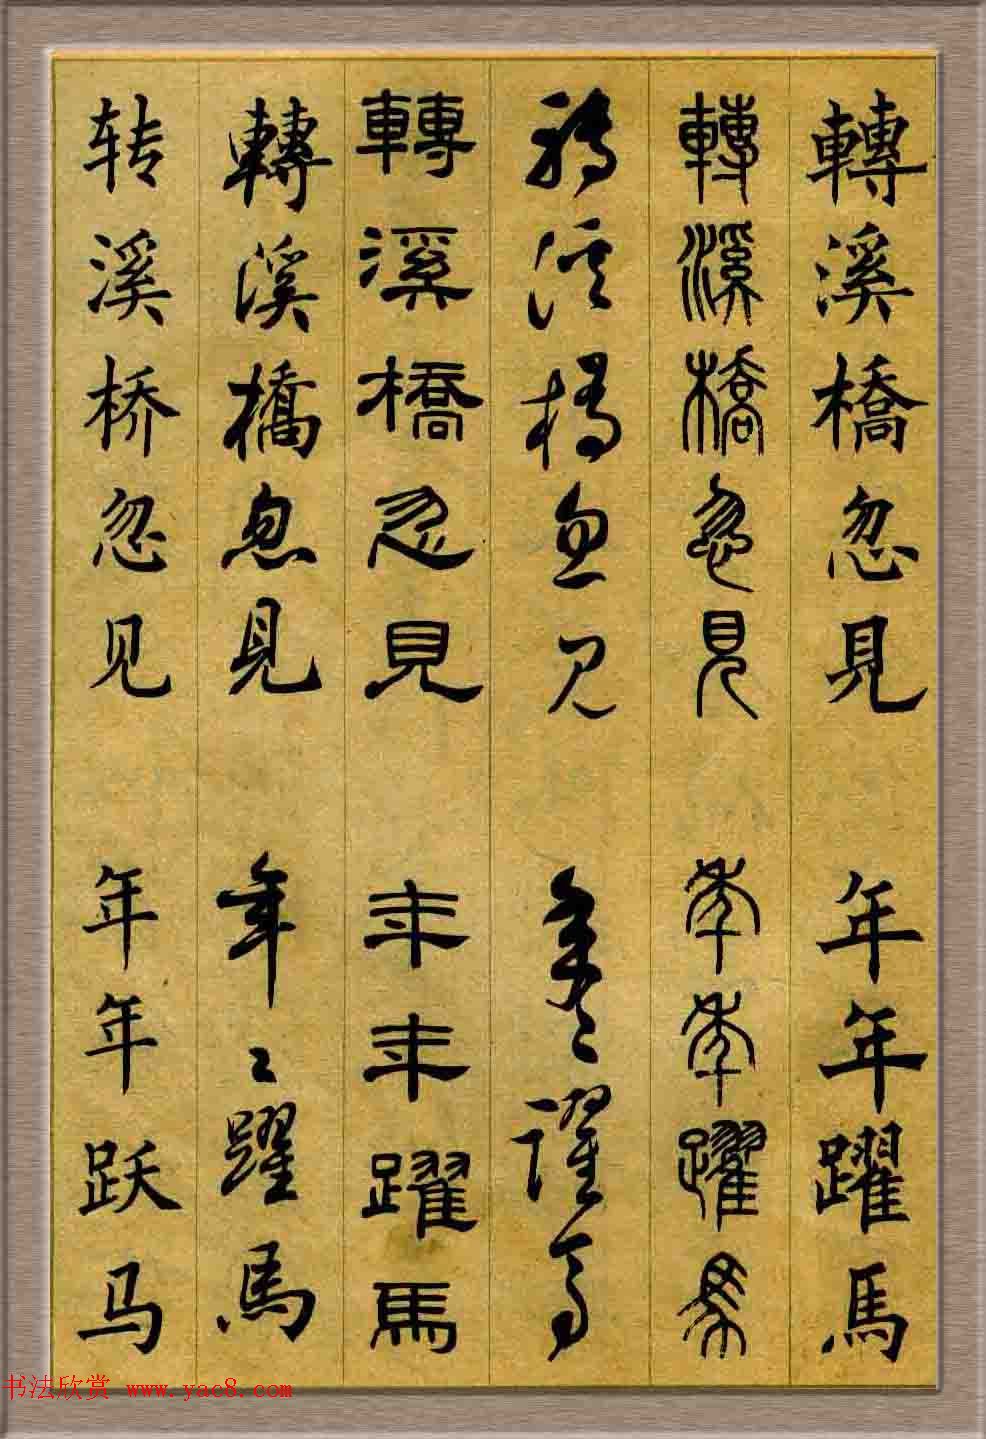 轉溪橋忽見 年年躍馬
轉溪橋忽見 年年躍馬
轉溪橋忽見 年年躍馬
轉溪橋忽見 年年躍馬
轉溪橋忽見 年〻躍馬
转溪桥忽见 年年跃马
书法欣赏 www.yac8.com